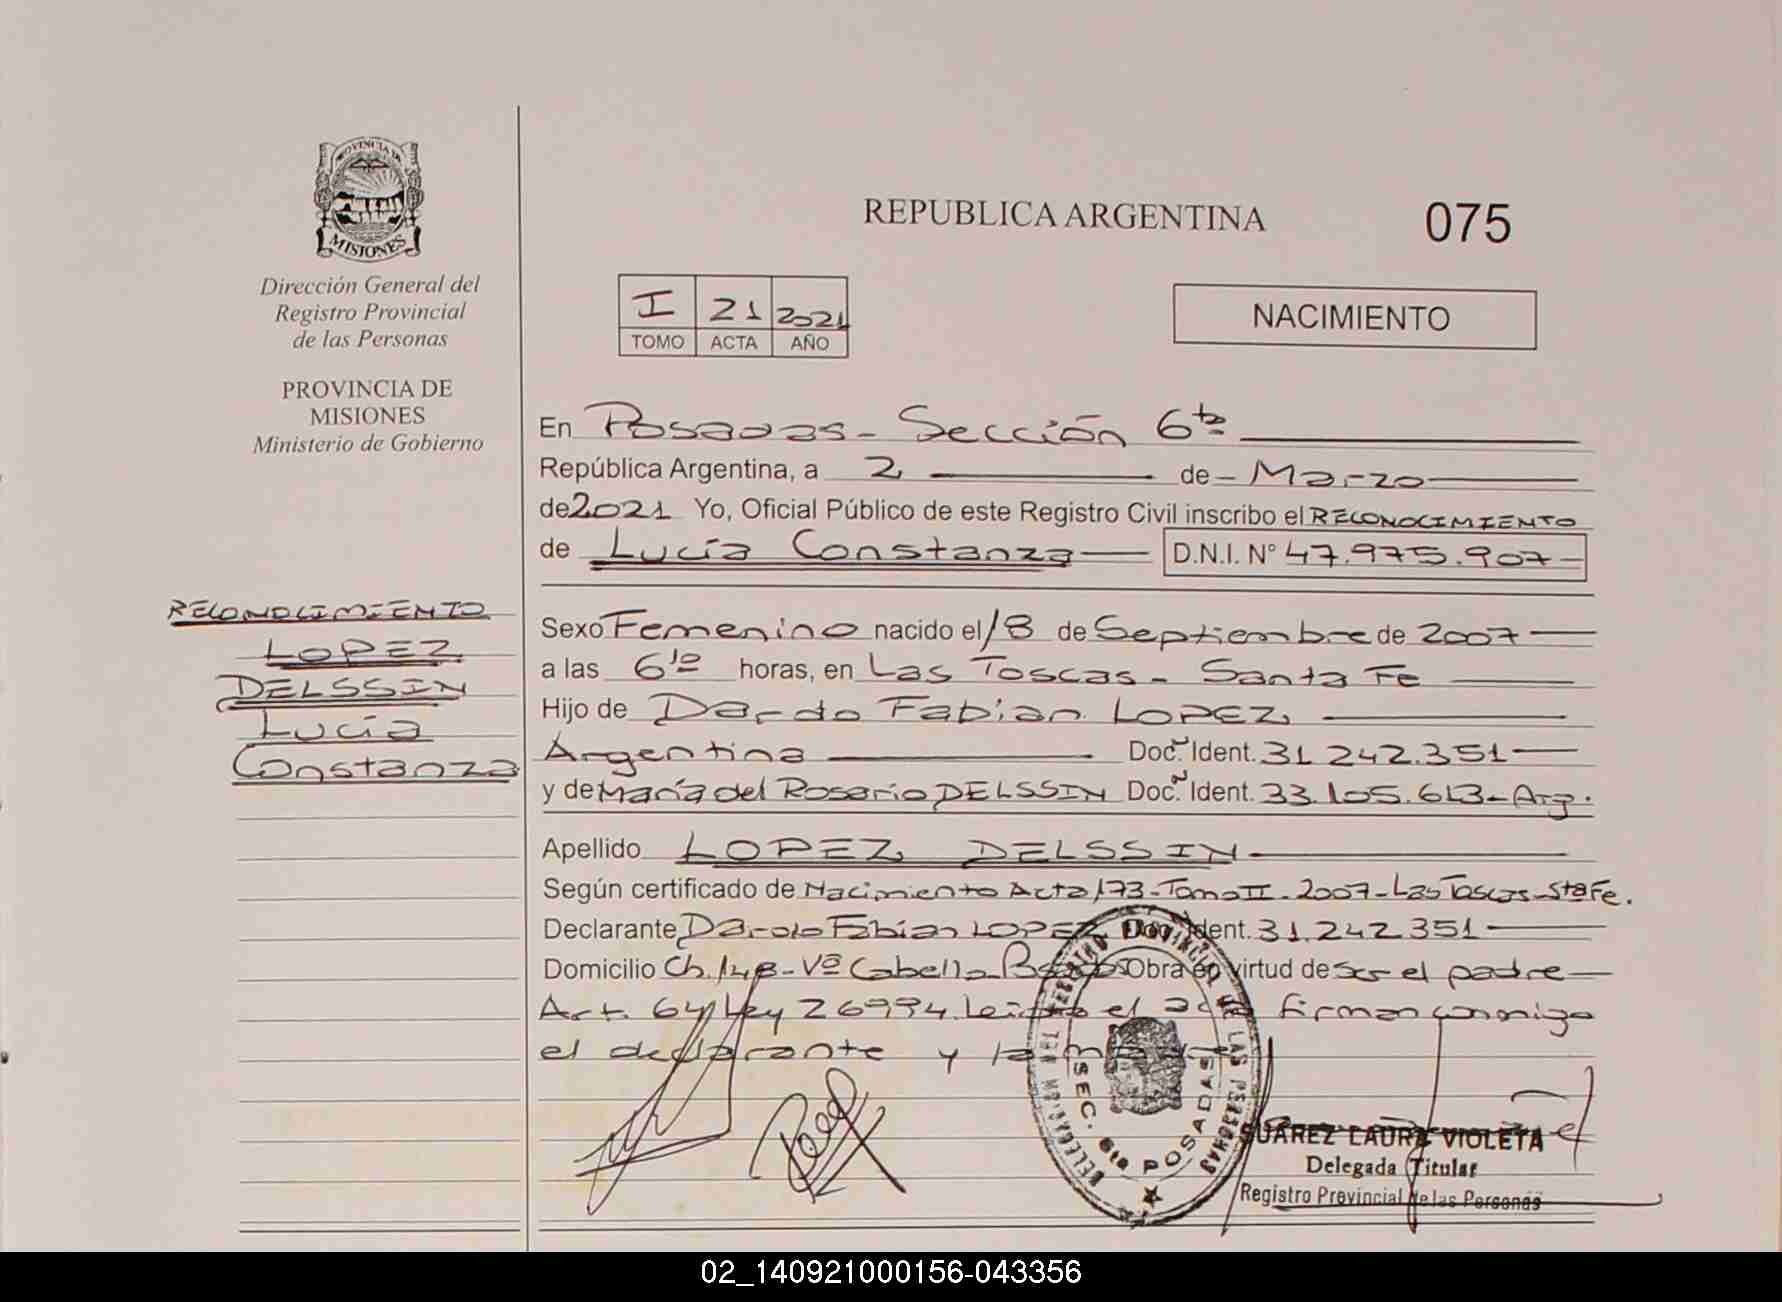 PROVINCIA DE
MISIONES
Dirección General del
Registro Provincial
de las Personas
PROVINCIA DE
MISIONES
Ministerio de Gobierno
REPUBLICA ARGENTINA
075
I 21 2021
TOMO ACTA AÑO
NACIMIENTO
En Posadas - Sección 6ta
República Argentina, a 2 de - Marzo
de 2021 Yo, Oficial Público de este Registro Civil inscribo el RECONOCIMIENTO
de Lucía Constanza D.N.I. N° 47.975.907-
RECONOCIMIENTO
LOPEZ
DELSSIN
Lucía
Constanza
Sexo Femenino nacido el 18 de Septiembre de 2007
a las 6 10 horas, en Las Toscas - Santa Fe
Hijo de Dardo Fabian LOPEZ
Argentina Doc. Ident. 31 242.351
y de María del Rosario DELSSIN Doc. Ident. 33.105.613 - Arg.
Apellido LOPEZ DELSSIN
Según certificado de Nacimiento Acta 173 - Tomo II - 2007 - Las Toscas - Sta Fe.
Declarante Dardo Fabian LOPEZ Doc. Ident. 31.242 351
Domicilio Ch. 148 - Vª Cabello Obra en virtud de ser el padre
Art. 64 Ley 26994. Leida el acta firman conmigo
el declarante y la madre
DELEGACION DEL REGISTRO PROVINCIAL DE LAS PERSONAS
SEC. 6ta POSADAS
SUAREZ LAURA VIOLETA
Delegada Titular
Registro Provincial de las Personas
02_140921000156-043356